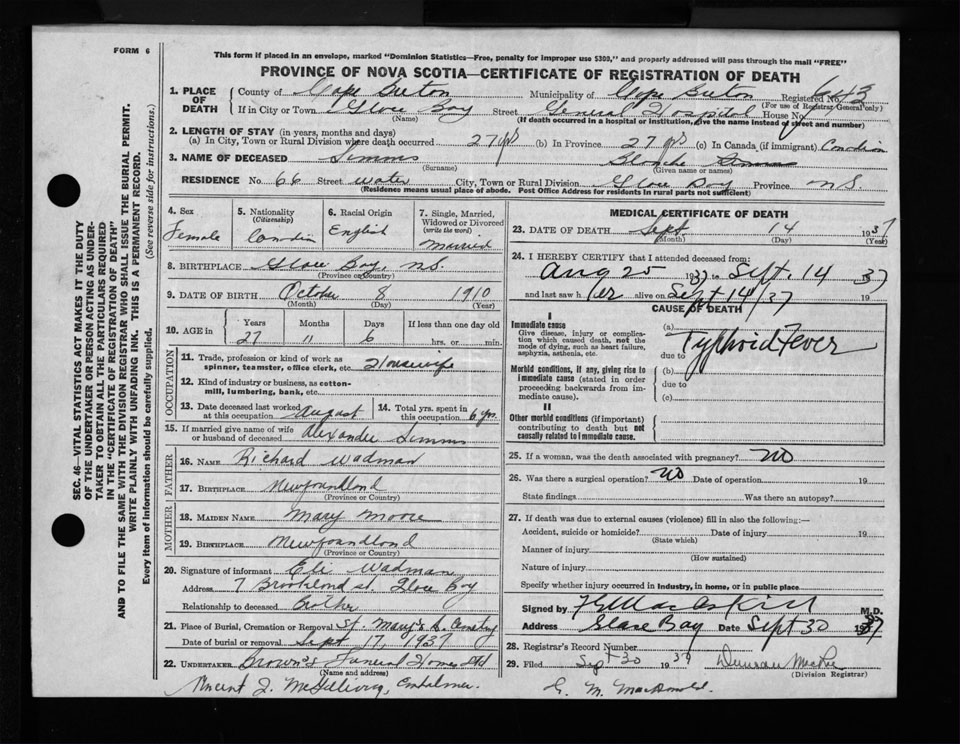 FORM 6
This form if placed in an envelope, marked "Dominion Statistics—Free, penalty for improper use $300," and properly addressed will pass through the mail "FREE"
PROVINCE OF NOVA SCOTIA—CERTIFICATE OF REGISTRATION OF DEATH
1. PLACE OF DEATH County of Cape Breton Municipality of Cape Breton Registered No. 643
(For use of Registrar General only)
If in City or Town Glace Bay Street General Hospital House No.
(Name) (If death occurred in a hospital or institution, give the name instead of street and number)
2. LENGTH OF STAY (in years, months and days)
(a) In City, Town or Rural Division where death occurred 27 yrs (b) In Province 27 yrs (c) In Canada (if immigrant) Canadian
3. NAME OF DECEASED Simms Blanche Simms
(Surname) (Given name or names)
RESIDENCE No. 66 Street Water City, Town or Rural Division Glace Bay Province N.S.
(Residence means usual place of abode. Post Office Address for residents in rural parts not sufficient)
4. Sex Female
5. Nationality (Citizenship) Canadian
6. Racial Origin English
7. Single, Married, Widowed or Divorced (write the word) Married
8. BIRTHPLACE Glace Bay, N.S.
(Province or Country)
9. DATE OF BIRTH October 8 1910
(Month) (Day) (Year)
10. AGE in Years Months Days If less than one day old
27 11 6 hrs. or min.
OCCUPATION
11. Trade, profession or kind of work as spinner, teamster, office clerk, etc. Housewife
12. Kind of industry or business, as cotton-mill, lumbering, bank, etc.
13. Date deceased last worked at this occupation August
14. Total yrs. spent in this occupation 6 yrs.
15. If married give name of wife or husband of deceased Alexander Simms
FATHER
16. NAME Richard Wadman
17. BIRTHPLACE Newfoundland
(Province or Country)
MOTHER
18. MAIDEN NAME Mary Moore
19. BIRTHPLACE Newfoundland
(Province or Country)
20. Signature of informant Eli Wadman
Address 7 Brookland St. Glace Bay
Relationship to deceased Brother
21. Place of Burial, Cremation or Removal St. Mary's Cemetery
Date of burial or removal Sept 17, 1937
22. UNDERTAKER Brown's Funeral Home Ltd
(Name and address)
Vincent J. McGillivray, Embalmer.
MEDICAL CERTIFICATE OF DEATH
23. DATE OF DEATH Sept 14 1937
(Month) (Day) (Year)
24. I HEREBY CERTIFY that I attended deceased from:
Aug 25 1937 to Sept. 14 1937
and last saw her alive on Sept 14/37 19
CAUSE OF DEATH
I
Immediate cause
Give disease, injury or complication which caused death, not the mode of dying, such as heart failure, asphyxia, asthenia, etc.
(a) Typhoid Fever
due to
Morbid conditions, if any, giving rise to immediate cause (stated in order proceeding backwards from immediate cause).
(b)
due to
(c)
II
Other morbid conditions (if important) contributing to death but not causally related to immediate cause.
25. If a woman, was the death associated with pregnancy? No
26. Was there a surgical operation? No Date of operation 19
State findings Was there an autopsy?
27. If death was due to external causes (violence) fill in also the following:—
Accident, suicide or homicide? Date of injury 19
(State which)
Manner of injury
(How sustained)
Nature of injury
Specify whether injury occurred in industry, in home, or in public place
Signed by MacAskill M.D.
Address Glace Bay Date Sept 30 1937
28. Registrar's Record Number
29. Filed Sept 30 1937 Duncan MacRae
(Division Registrar)
G. M. MacDonald.
SEC. 46—VITAL STATISTICS ACT MAKES IT THE DUTY
OF THE UNDERTAKER OR PERSON ACTING AS UNDER-
TAKER TO OBTAIN ALL THE PARTICULARS REQUIRED
IN THE "CERTIFICATE OF REGISTRATION OF DEATH"
AND TO FILE THE SAME WITH THE DIVISION REGISTRAR WHO SHALL ISSUE THE BURIAL PERMIT.
WRITE PLAINLY WITH UNFADING INK. THIS IS A PERMANENT RECORD.
Every item of information should be carefully supplied. (See reverse side for instructions.)